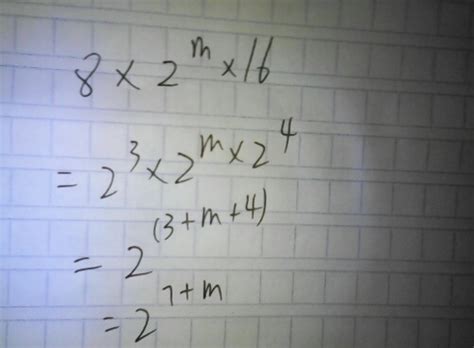 8 × 2^m × 16
= 2^3 × 2^m × 2^4
= 2^(3+m+4)
= 2^7+m